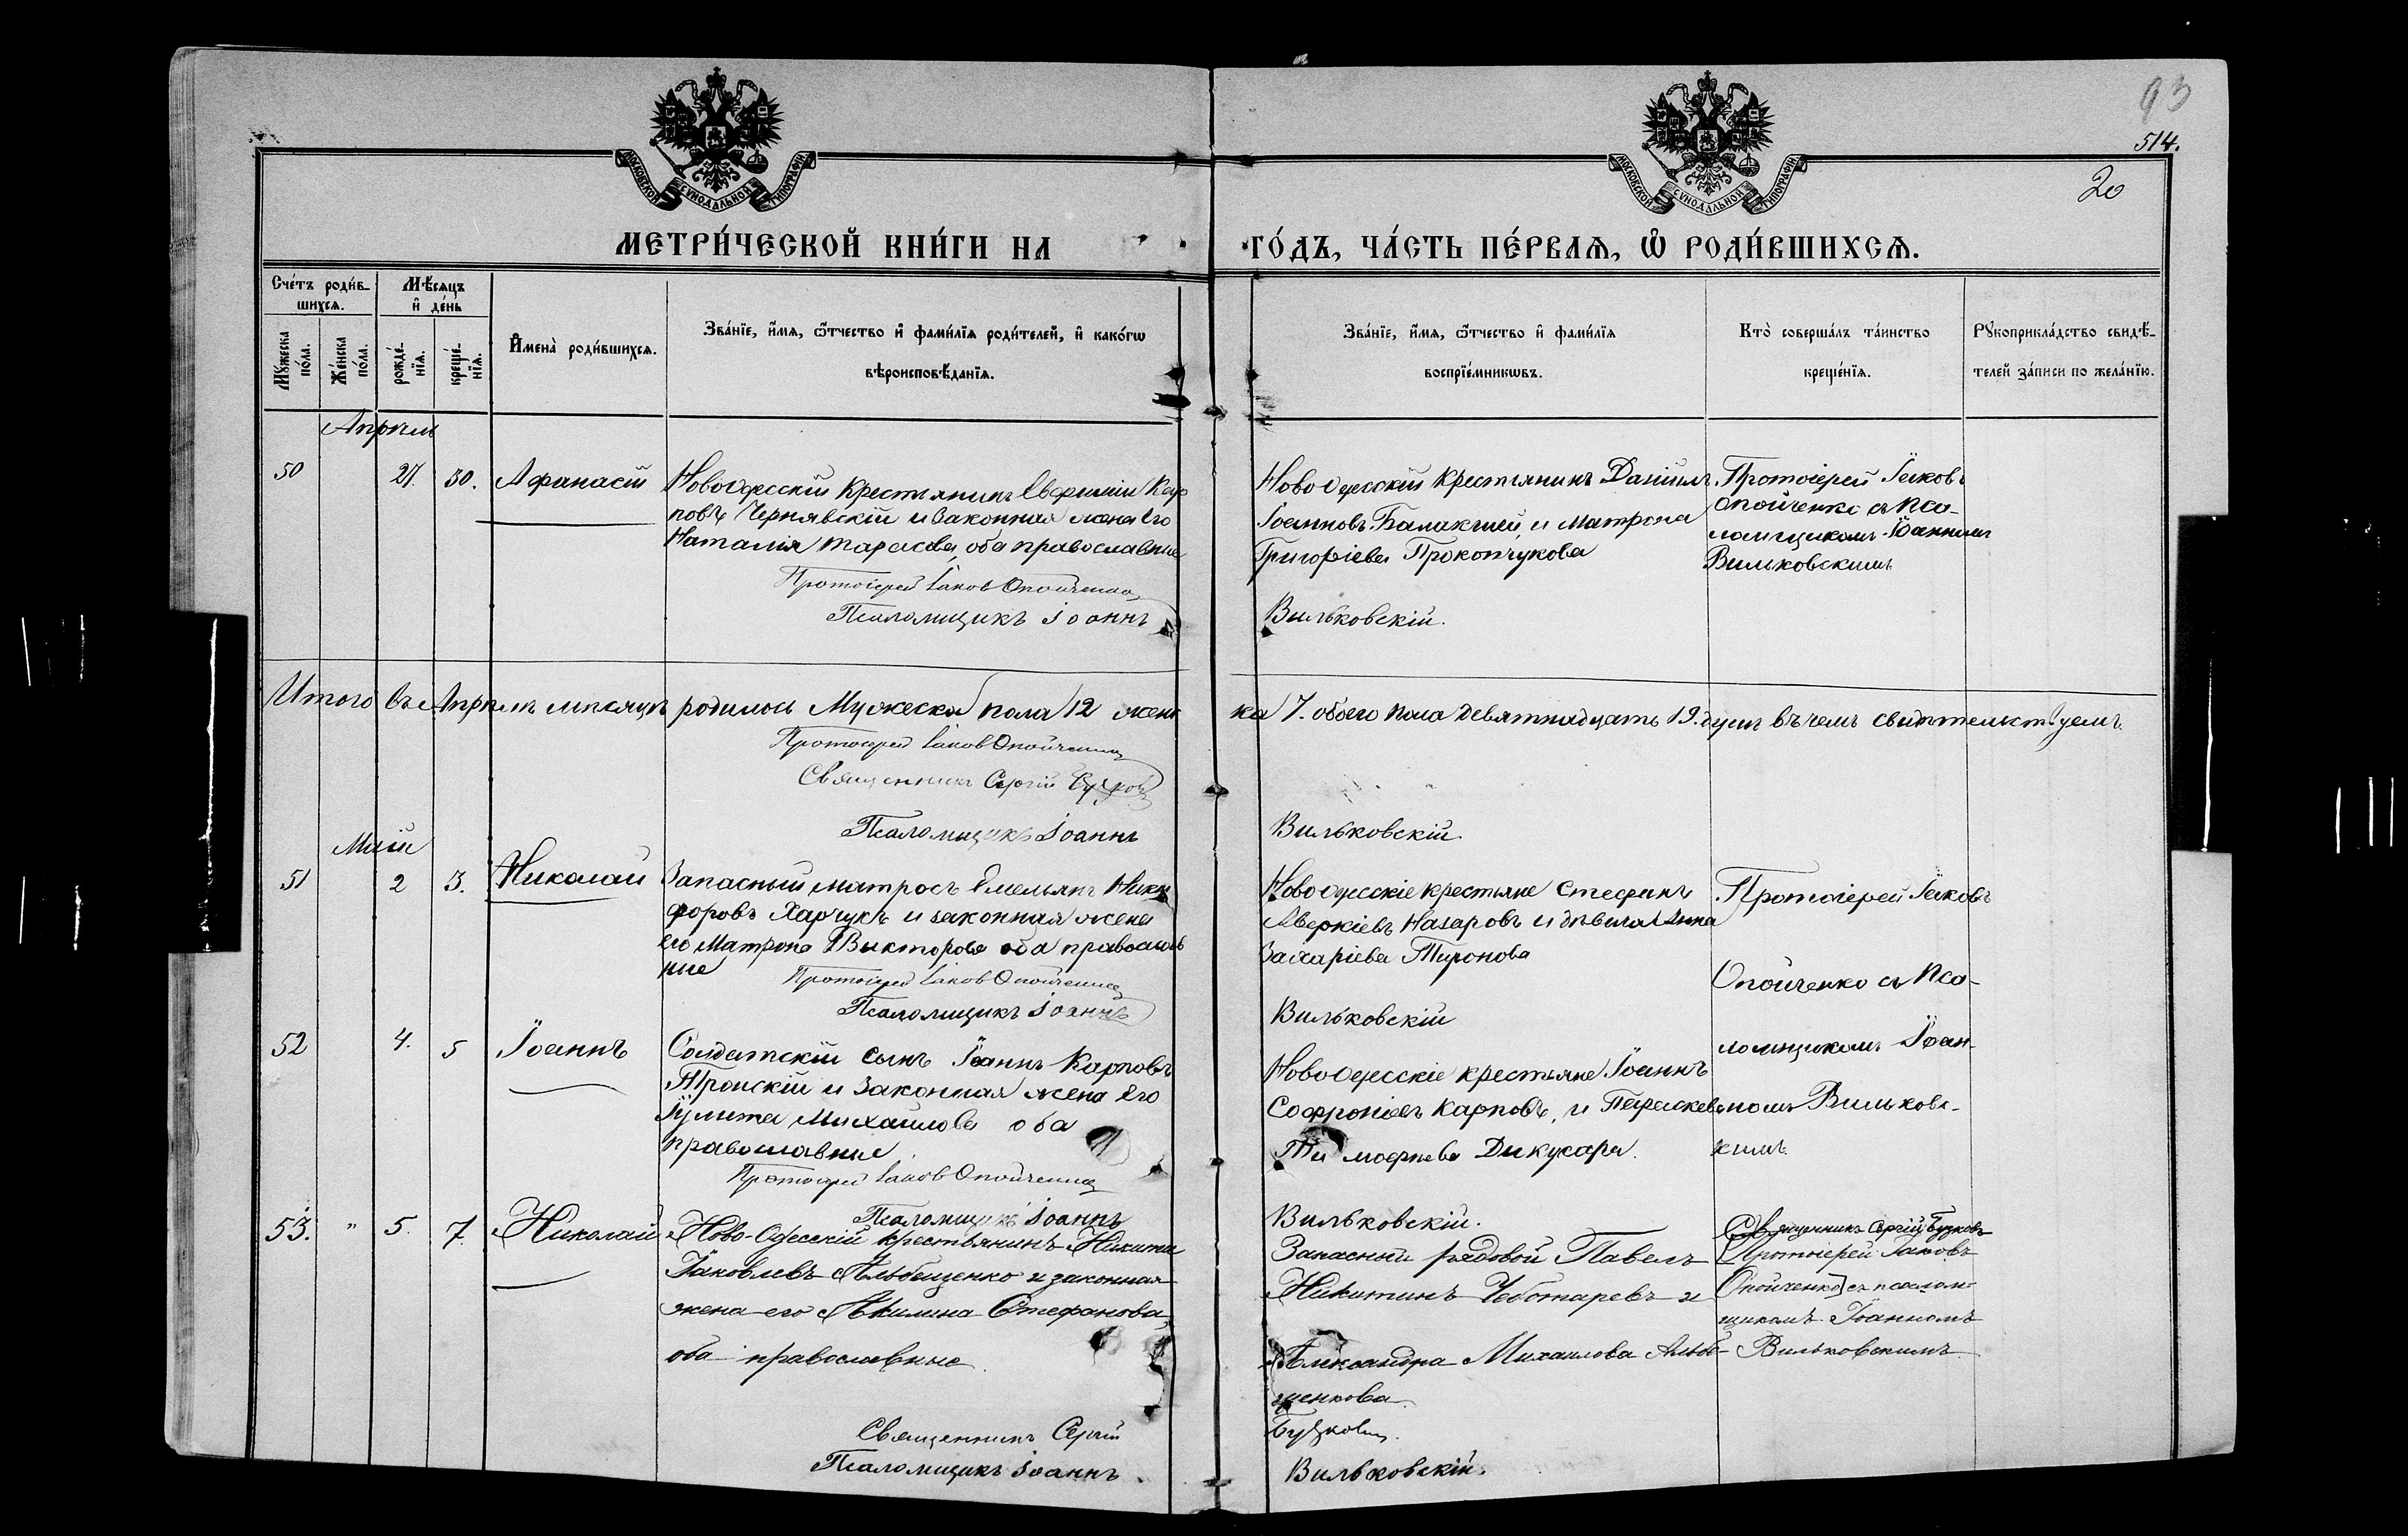 93
514.
20
МОСКОВСКОЙ СѴНОДАЛЬНОЙ ТИПОГРАФІИ
МОСКОВСКОЙ СѴНОДАЛЬНОЙ ТИПОГРАФІИ
МЕТРИ́ЧЕСКОЙ КНИ́ГИ НА
ГО́ДЪ, ЧА́СТЬ ПЕ́РВАѦ, Ѡ҆ РОДИ́ВШИХСѦ.
Сче́тъ роди́в-
шихсѧ.
Мѣ́сяцъ
и҆ де́нь
Мꙋ́жеска
по́ла.
Же́нска
по́ла.
рожде́-
нїѧ.
креще́-
нїѧ.
И҆мена̀ роди́вшихсѧ.
Зва́нїе, и҆́мѧ, ѻ҆́тчество и҆ фами́лїѧ роди́телей, и҆ како́гѡ
вѣроисповѣ́данїѧ.
Зва́нїе, и҆́мѧ, ѻ҆́тчество и҆ фами́лїѧ
воспрїе́мникѡвъ.
Кто̀ соверша́лъ та́инство
креще́нїѧ.
Рꙋкоприкла́дство свидѣ́-
телей за́писи по жела́нїю.
Апрѣль
50 27. 30. Афанасій
НовоОдесскій крестьянинъ Евфимій Кар
повъ Чернявскій и законная жена его
Наталія Тарасова, оба православные
Протоіерей Іаковъ Опойченко
Псаломщикъ Іоаннъ
НовоОдесскій крестьянинъ Даніилъ
Іоанновъ Балакчей, и Матрона
Григоріева Прокопчукова
Вильковскій.
Протоіерей Іаковъ
Опойченко съ Пса-
ломщикомъ Іоанномъ
Вильковскимъ
Итого въ Апрѣлѣ мѣсяцѣ родилось Мужеска пола 12 женс
ка 7. обоего пола девятнадцать 19. душъ въ чемъ свидѣтельствуемъ.
Протоіерей Іаковъ Опойченко
Священникъ Сергій Буцковъ
Псаломщикъ Іоаннъ
Вильковскій.
Маій
51 2 3. Николай
Запасный матросъ Емельянъ Ники
форовъ Харчукъ и законная жена
его Матрона Викторова оба православ
ные
Протоіерей Іаковъ Опойченко
Псаломщикъ Іоаннъ
НовоОдесскіе крестьяне Стефанъ
Аверкіевъ Назаровъ и дѣвица Анна
Захаріева Миронова
Вильковскій
Протоіерей Іаковъ
Опойченко съ Пса-
ломщикомъ Іоан-
номъ Вильковс-
кимъ
52 4. 5 Іоаннъ
Солдатскій сынъ Іоаннъ Карповъ
Тронскій и законная жена его
Іулита Михайлова оба
православные
Протоіерей Іаковъ Опойченко
Псаломщикъ Іоаннъ
НовоОдесскіе крестьяне Іоаннъ
Софроніевъ Карповъ, и Параскева
Тимофеева Дикусара.
Вильковскій.
53. " 5. 7. Николай
Ново-Одесскій крестьянинъ Никита
Іаковлевъ Альбещенко и законная
жена его Акилина Стефанова,
оба православные.
Священникъ Сергій
Псаломщикъ Іоаннъ
Запасный рядовой Павелъ
Никитинъ Чеботаревъ и
Александра Михаилова Альбе-
щенкова
Буцковъ.
Вильковскій.
Священникъ Сергій Буцковъ
[Протоіерей Іаковъ
Опойченко] съ псалом-
щикомъ Іоанномъ
Вильковскимъ